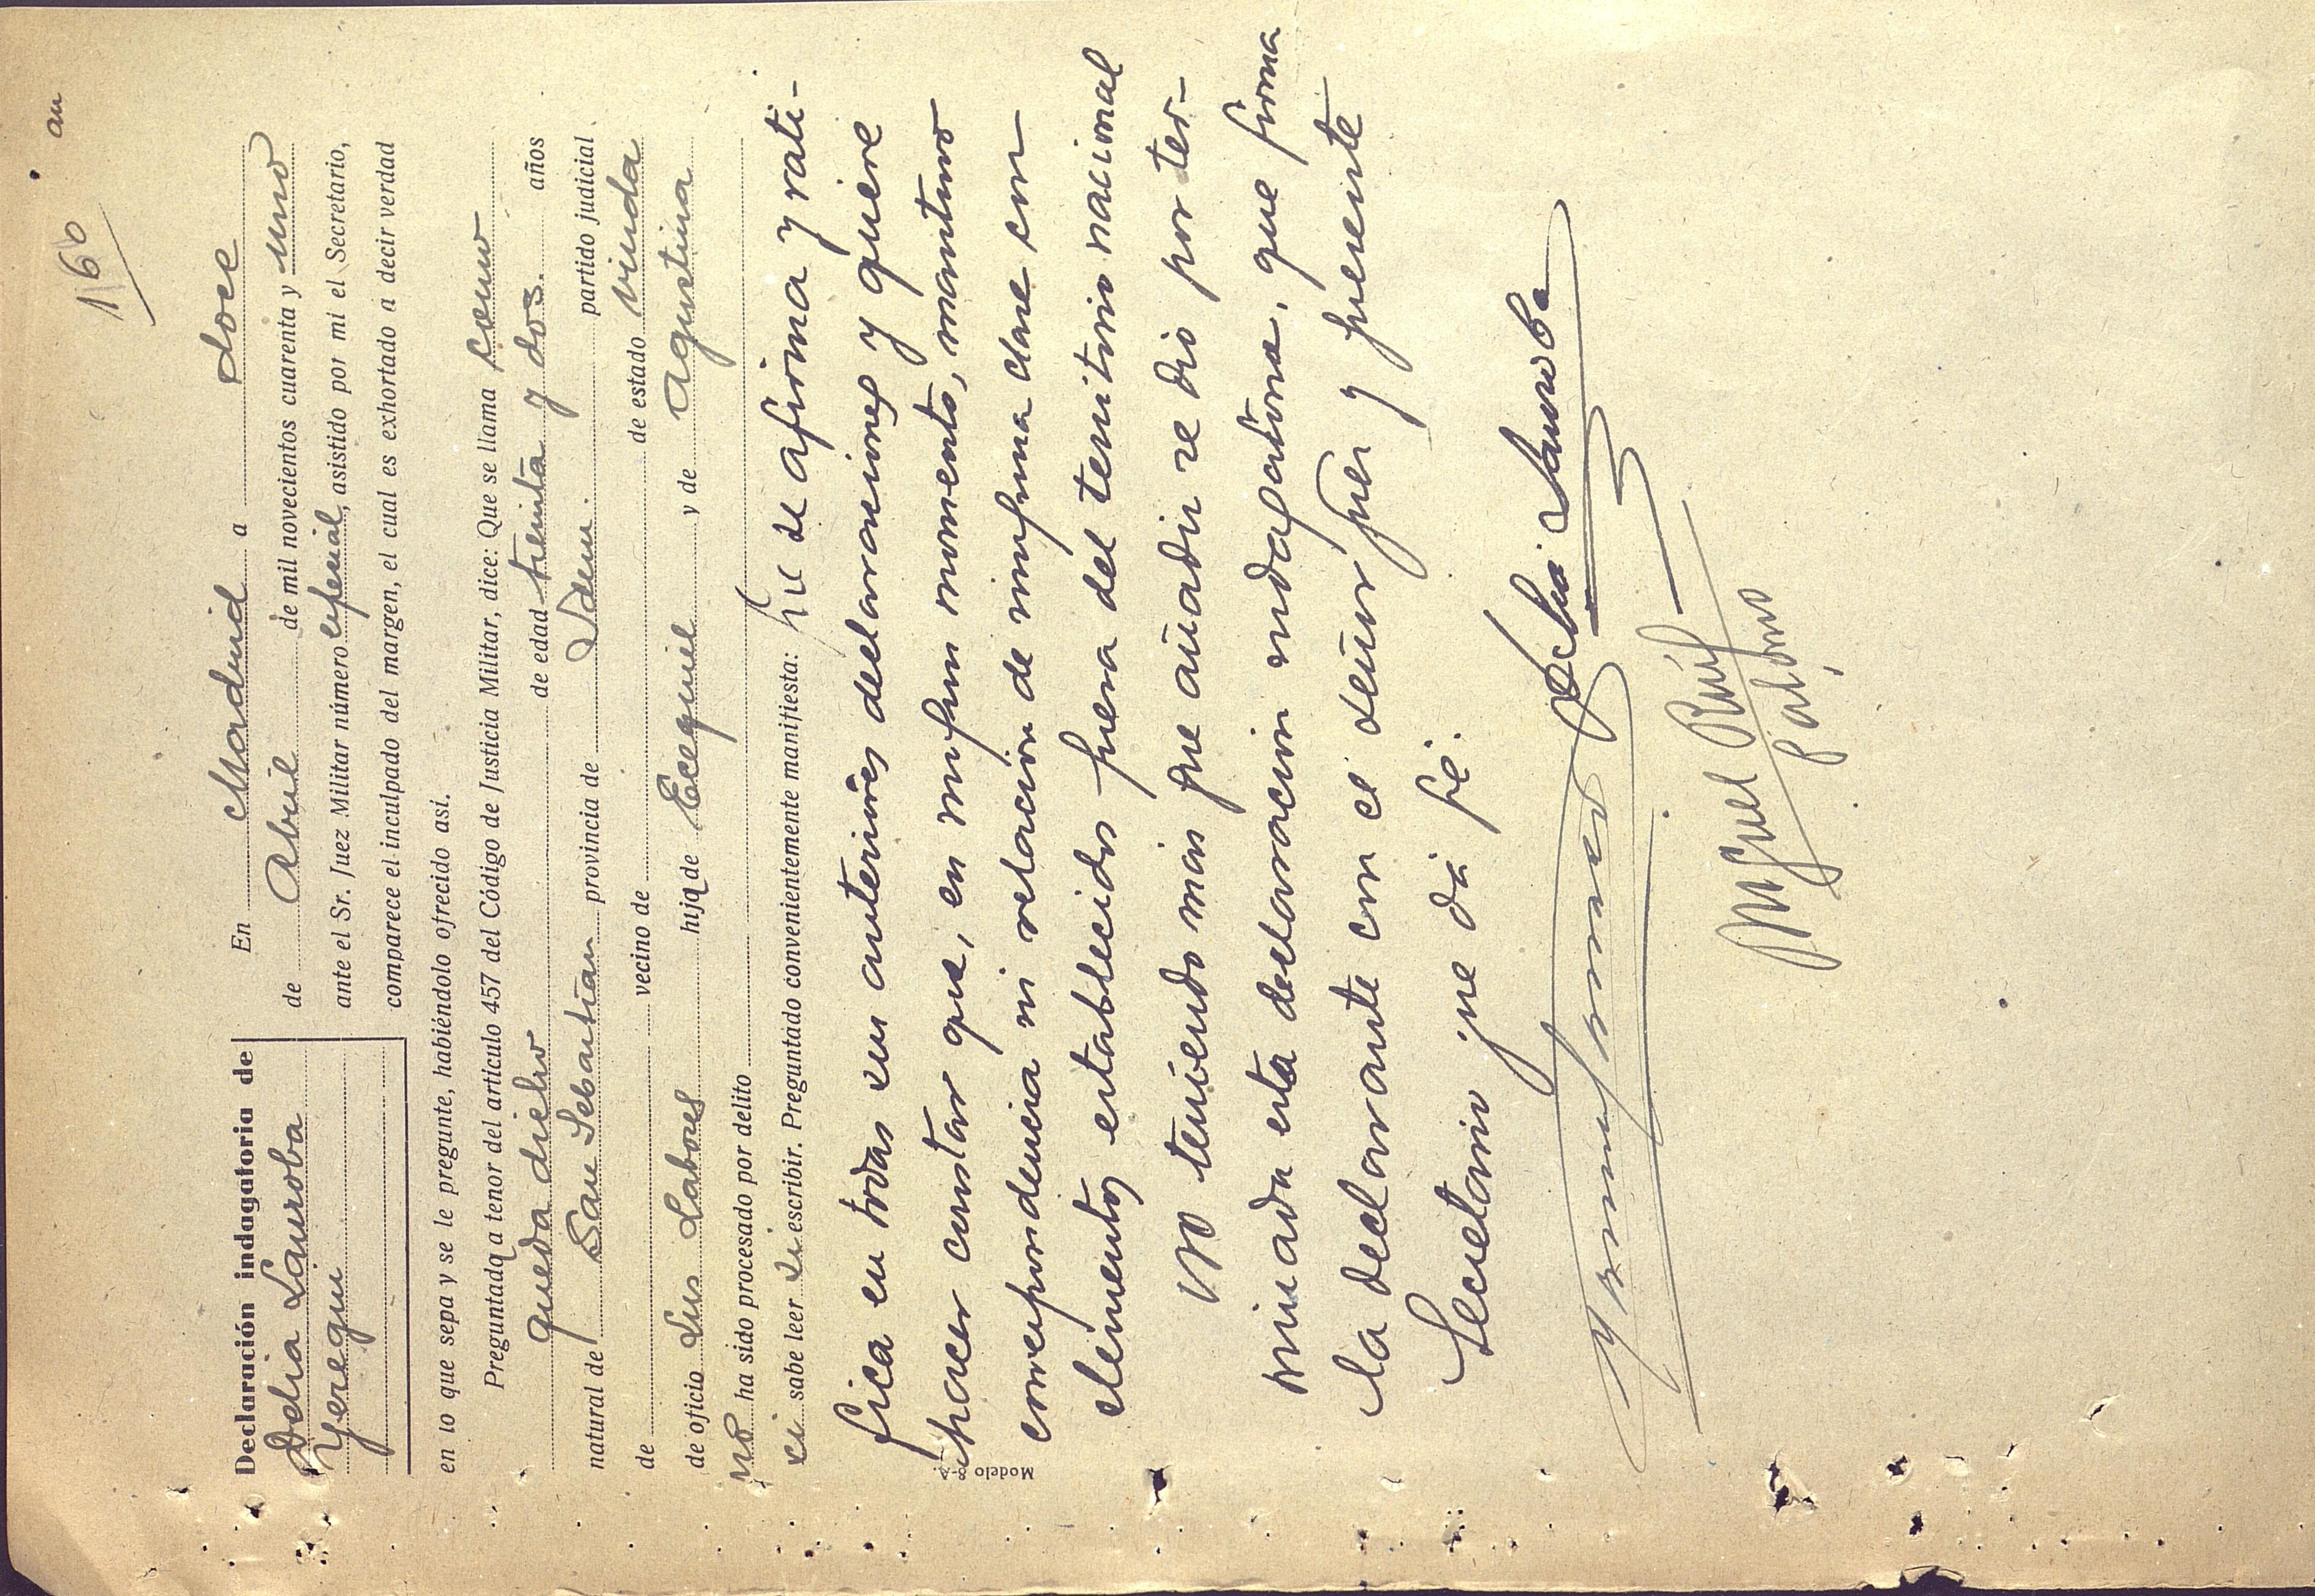 au
166
Declaración indagatoria de
Delia Lauroba
Yeregui
En Madrid a doce
de Abril de mil novecientos cuarenta y uno
ante el Sr. Juez Militar número especial, asistido por mi el Secretario,
comparece el inculpado del margen, el cual es exhortado a decir verdad
en lo que sepa y se le pregunte, habiéndolo ofrecido así.
Preguntada a tenor del artículo 457 del Código de Justicia Militar, dice: Que se llama como
queda dicho de edad treinta y dos. años
natural de San Sebastian provincia de Idem. partido judicial
de vecino de de estado viuda
de oficio Sus Labores hija de Ecequiel y de Agustina
no ha sido procesado por delito
si sabe leer si escribir. Preguntado convenientemente manifiesta: Que se afirma y rati-
fica en todas sus anteriores declaraciones y quiere
hacer constar que, en ningun momento, mantuvo
correspondencia ni relación de ninguna clase con
elementos establecidos fuera del territorio nacional
No teniendo mas que añadir se dió por ter-
minada esta declaracion indagatoria, que firma
la declarante con el señor Juez y presente
Secretario que dá fé.
Delia Lauroba
Miguel Ruiz
Palomo
Modelo 8-A.